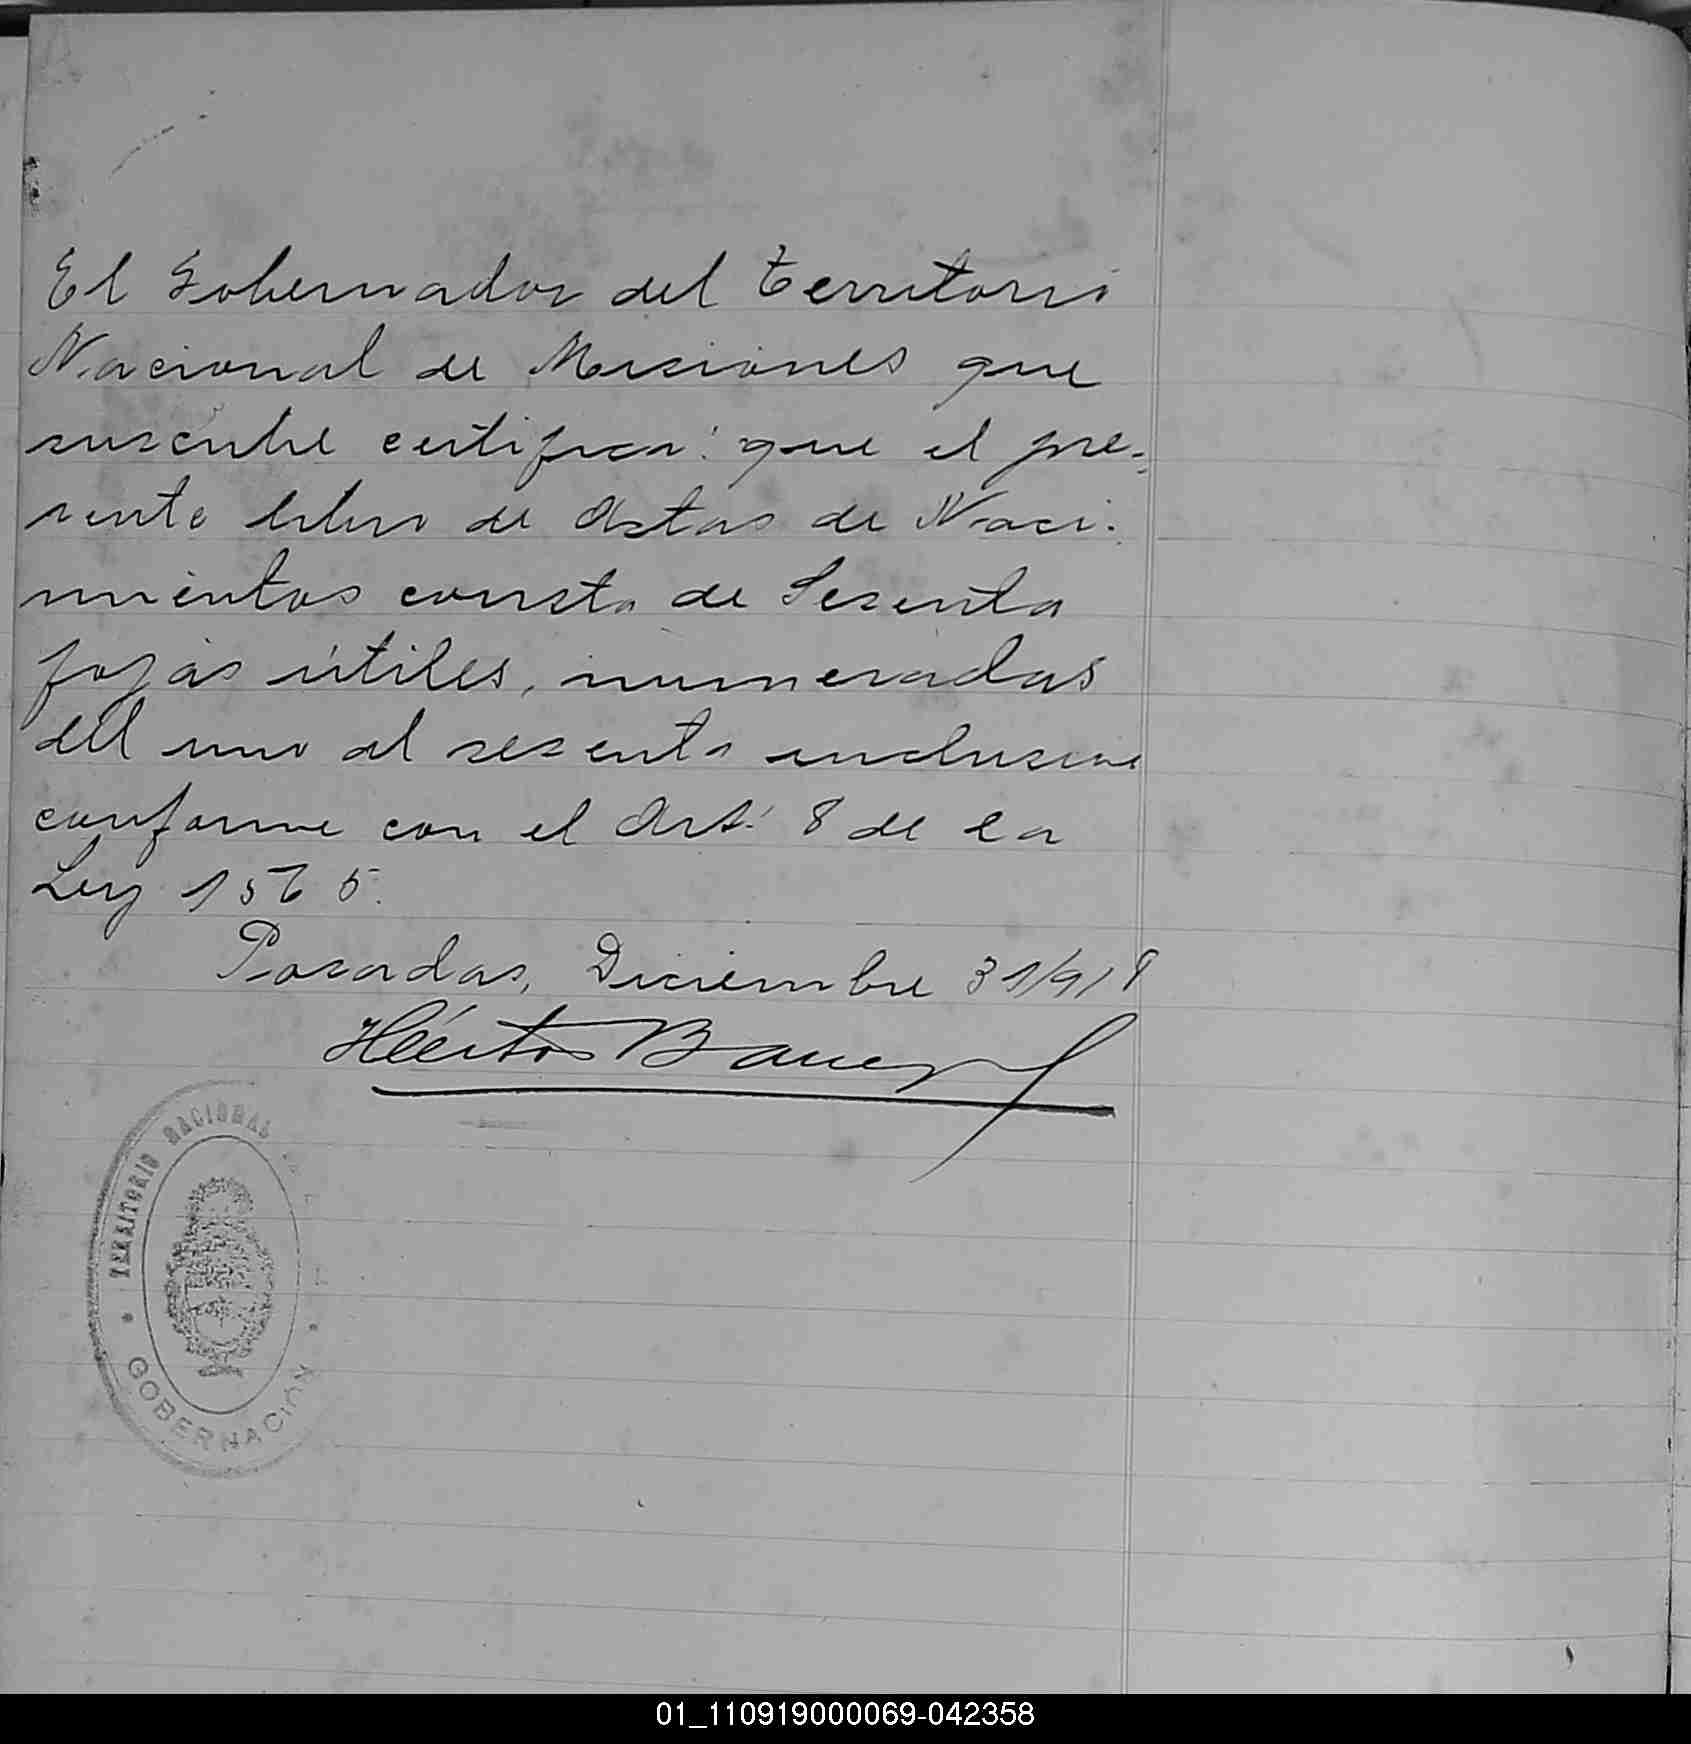 El Gobernador del Territorio
Nacional de Misiones que
suscribe certifica: que el pre-
sente libro de Actas de Naci-
mientos consta de Sesenta
fojas útiles, numeradas
del uno al sesenta inclusive
conforme con el Art. 8 de la
Ley 1565.
Posadas, Diciembre 31/918
Héctor
TERRITORIO NACIONAL
GOBERNACION
01_110919000069-042358